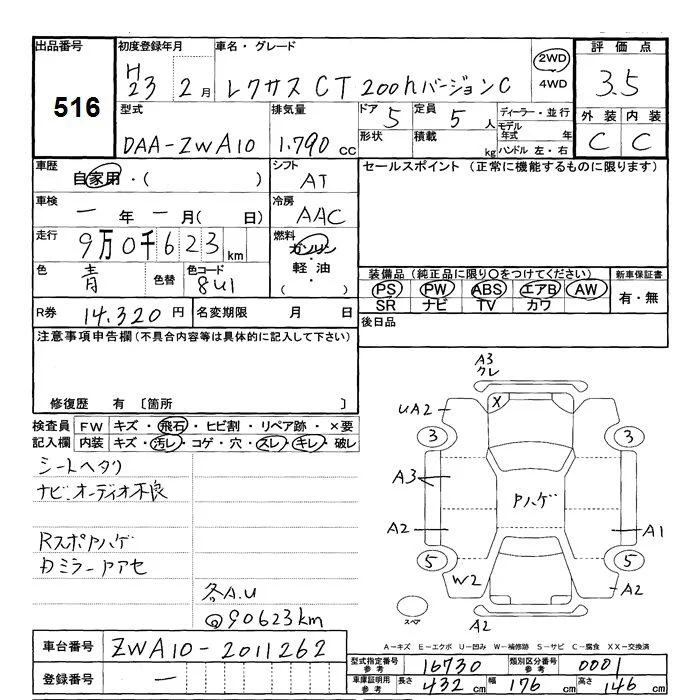 出品番号 初度登録年月 車名・グレード 評価点
516 H23 2月 レクサス CT 200hバージョンC 2WD 4WD 3.5
型式 排気量 ドア 5 定員 5人 ディーラー・並行 外装 内装
DAA-ZWA10 1.790 cc 形状 積載 kg モデル年式 年 ハンドル 左・右 C C
車歴 自家用・( ) シフト AT セールスポイント (正常に機能するものに限ります)
車検 一年一月( 日) 冷房 AAC
走行 9万0千623km 燃料 ガソリン 軽油 ( )
色 青 色替 色コード 8U1
装備品(純正品に限り○をつけてください) 新車保証書
PS PW ABS エアB AW 有・無
SR ナビ TV カワ
R券 14.320円 名変期限 月 日 後日品
注意事項申告欄(不具合内容等は具体的に記入して下さい)
修復歴 有 〔箇所 〕
検査員 FW キズ・飛石・ヒビ割・リペア跡・×要
記入欄 内装 キズ・汚レ・コゲ・穴・スレ・キレ・破レ
シートヘタリ
ナビ.オーディオ不良
Rスポハゲ
Dミラーアアセ
各A.U
@90623km
A3
クレ
UA2 X
3 3
A3 Pハゲ
A2 A1
5 5
W2 UA2
スペア A2
A-キズ E-エクボ U-凹み W-補修跡 S-サビ C-腐食 XX-交換済
車台番号 ZWA10-2011262
登録番号 一
型式指定番号 参考 16730 類別区分番号 参考 0001
車庫証明用 参考 長さ 432cm 幅 176cm 高さ 146cm